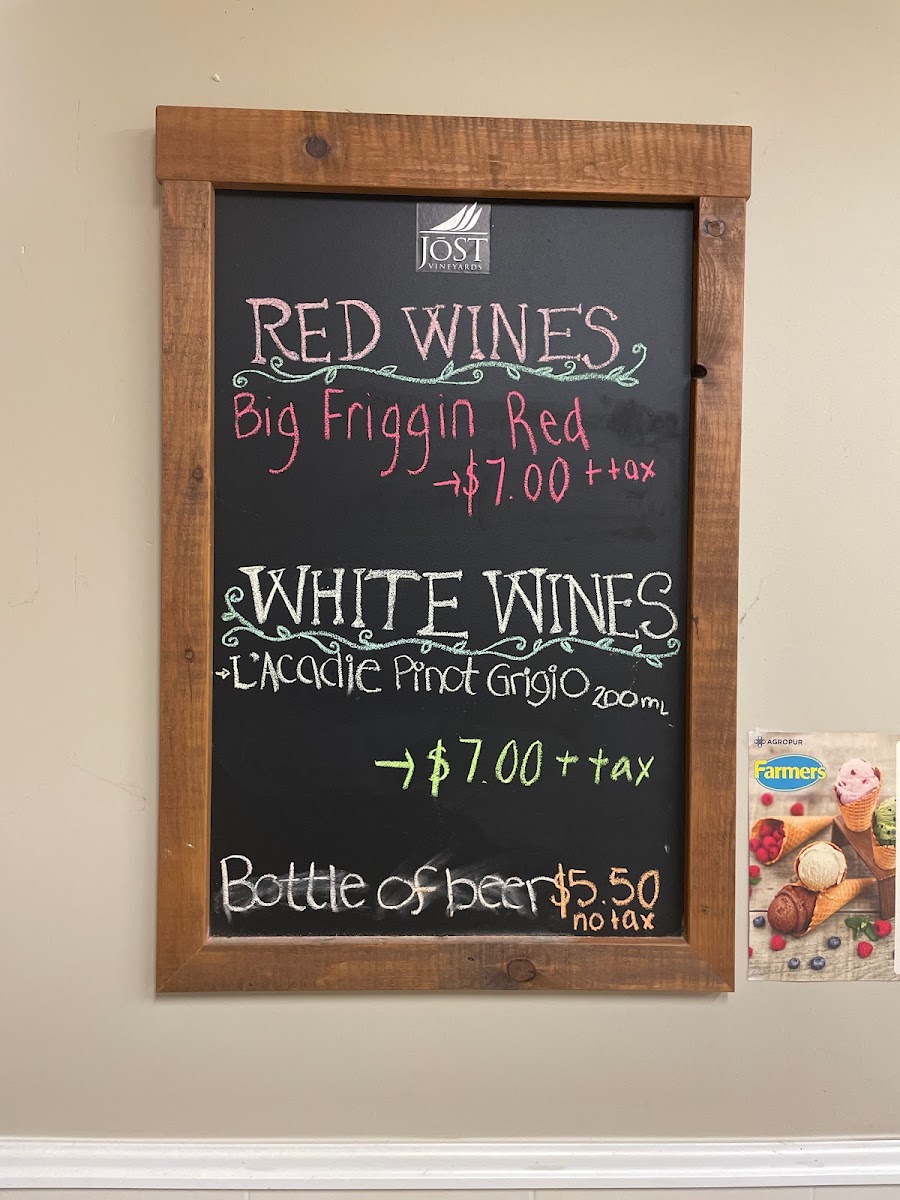 JŌST
VINEYARDS
RED WINES
Big Friggin Red
→$7.00 + tax
WHITE WINES
→L'Acadie Pinot Grigio 200mL
→$7.00 + tax
Bottle of beer $5.50
no tax
AGROPUR
Farmers